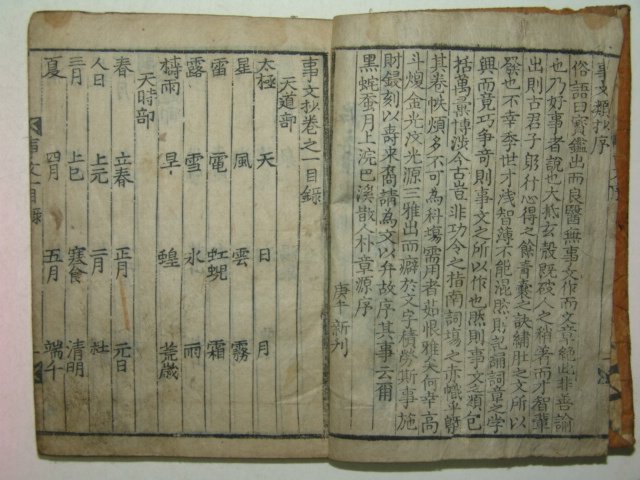 事文類抄序
俗語曰寶鑑出而良醫無事文作而文章絶此非善諭
也乃好事者說也大抵玄殼旣破人之稍著而才智輩
出則古君子躬行心得之餘青囊之訣繡肚之文所以
發也不幸季世才淺智薄不能混然則記誦詞章之學
興而竟巧爭奇則事文之所以作也然則事文之類包
括萬彙博淡今古豈非功令之指南詞場之赤幟乎
其卷帙煩多不可為科場需用者茹恨雅矣何幸高
斗煌金光汶光源三雅出而癖於文字積勞斯事施
財鋟刻以壽来裔請為文以弁故序其事云爾
黑蛇蚕月上浣巴溪散人朴章源序
庚午 新刊
事文抄卷之一目錄
天道部
太極 天 日 月
星 風 雲 霧
雷 電 虹蜺 霜
露 雪 氷 雨
禱雨 旱 蝗 荒歲
天時部
春月 立春 正月 元日
人日 上元 二月 社
三月 上巳 寒食 清明
夏 四月 五月 端午
事文一目錄